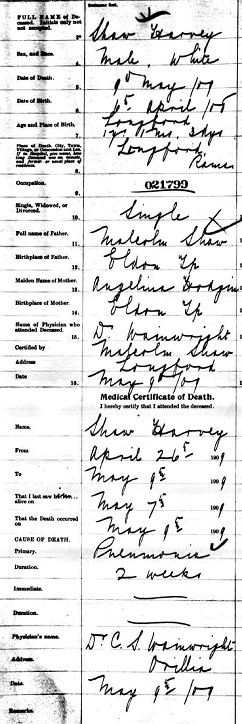 Surname first.
FULL NAME of Deceased. Initials only not accepted. Shaw Harvey
3.
Sex, and Race. Male, White
4.
Date of Death. 9th May /09
5.
Date of Birth. 6th April /08
6.
Age and Place of Birth. Longford
7. 1 yr. 1 mo. 3 dys
Place of Death, City, Town, Longford
8. Rama
Occupation. 021799
9.
Single, Widowed, or Divorced. Single
10.
Full name of Father. Malcolm Shaw
11.
Birthplace of Father. Eldon Tp
12.
Maiden Name of Mother. Angelina Hodgin
13.
Birthplace of Mother. Eldon Tp
14.
Name of Physician who attended Deceased. Dr Wainwright
15.
Certified by Malcolm Shaw
Address Longford
Date May 9th /09
16.
Medical Certificate of Death.
I hereby certify that I attended the deceased.
Name. Shaw Harvey
From April 26th 1909
To May 9th 1909
That I last saw alive on May 7th 1909
That the Death occurred on May 9th 1909
CAUSE OF DEATH.
Primary. Pneumonia
Duration. 2 weeks
Immediate.
Duration.
Physician's name. Dr C. S. Wainwright
Address. Orillia
Date. May 9th /09
Remarks.